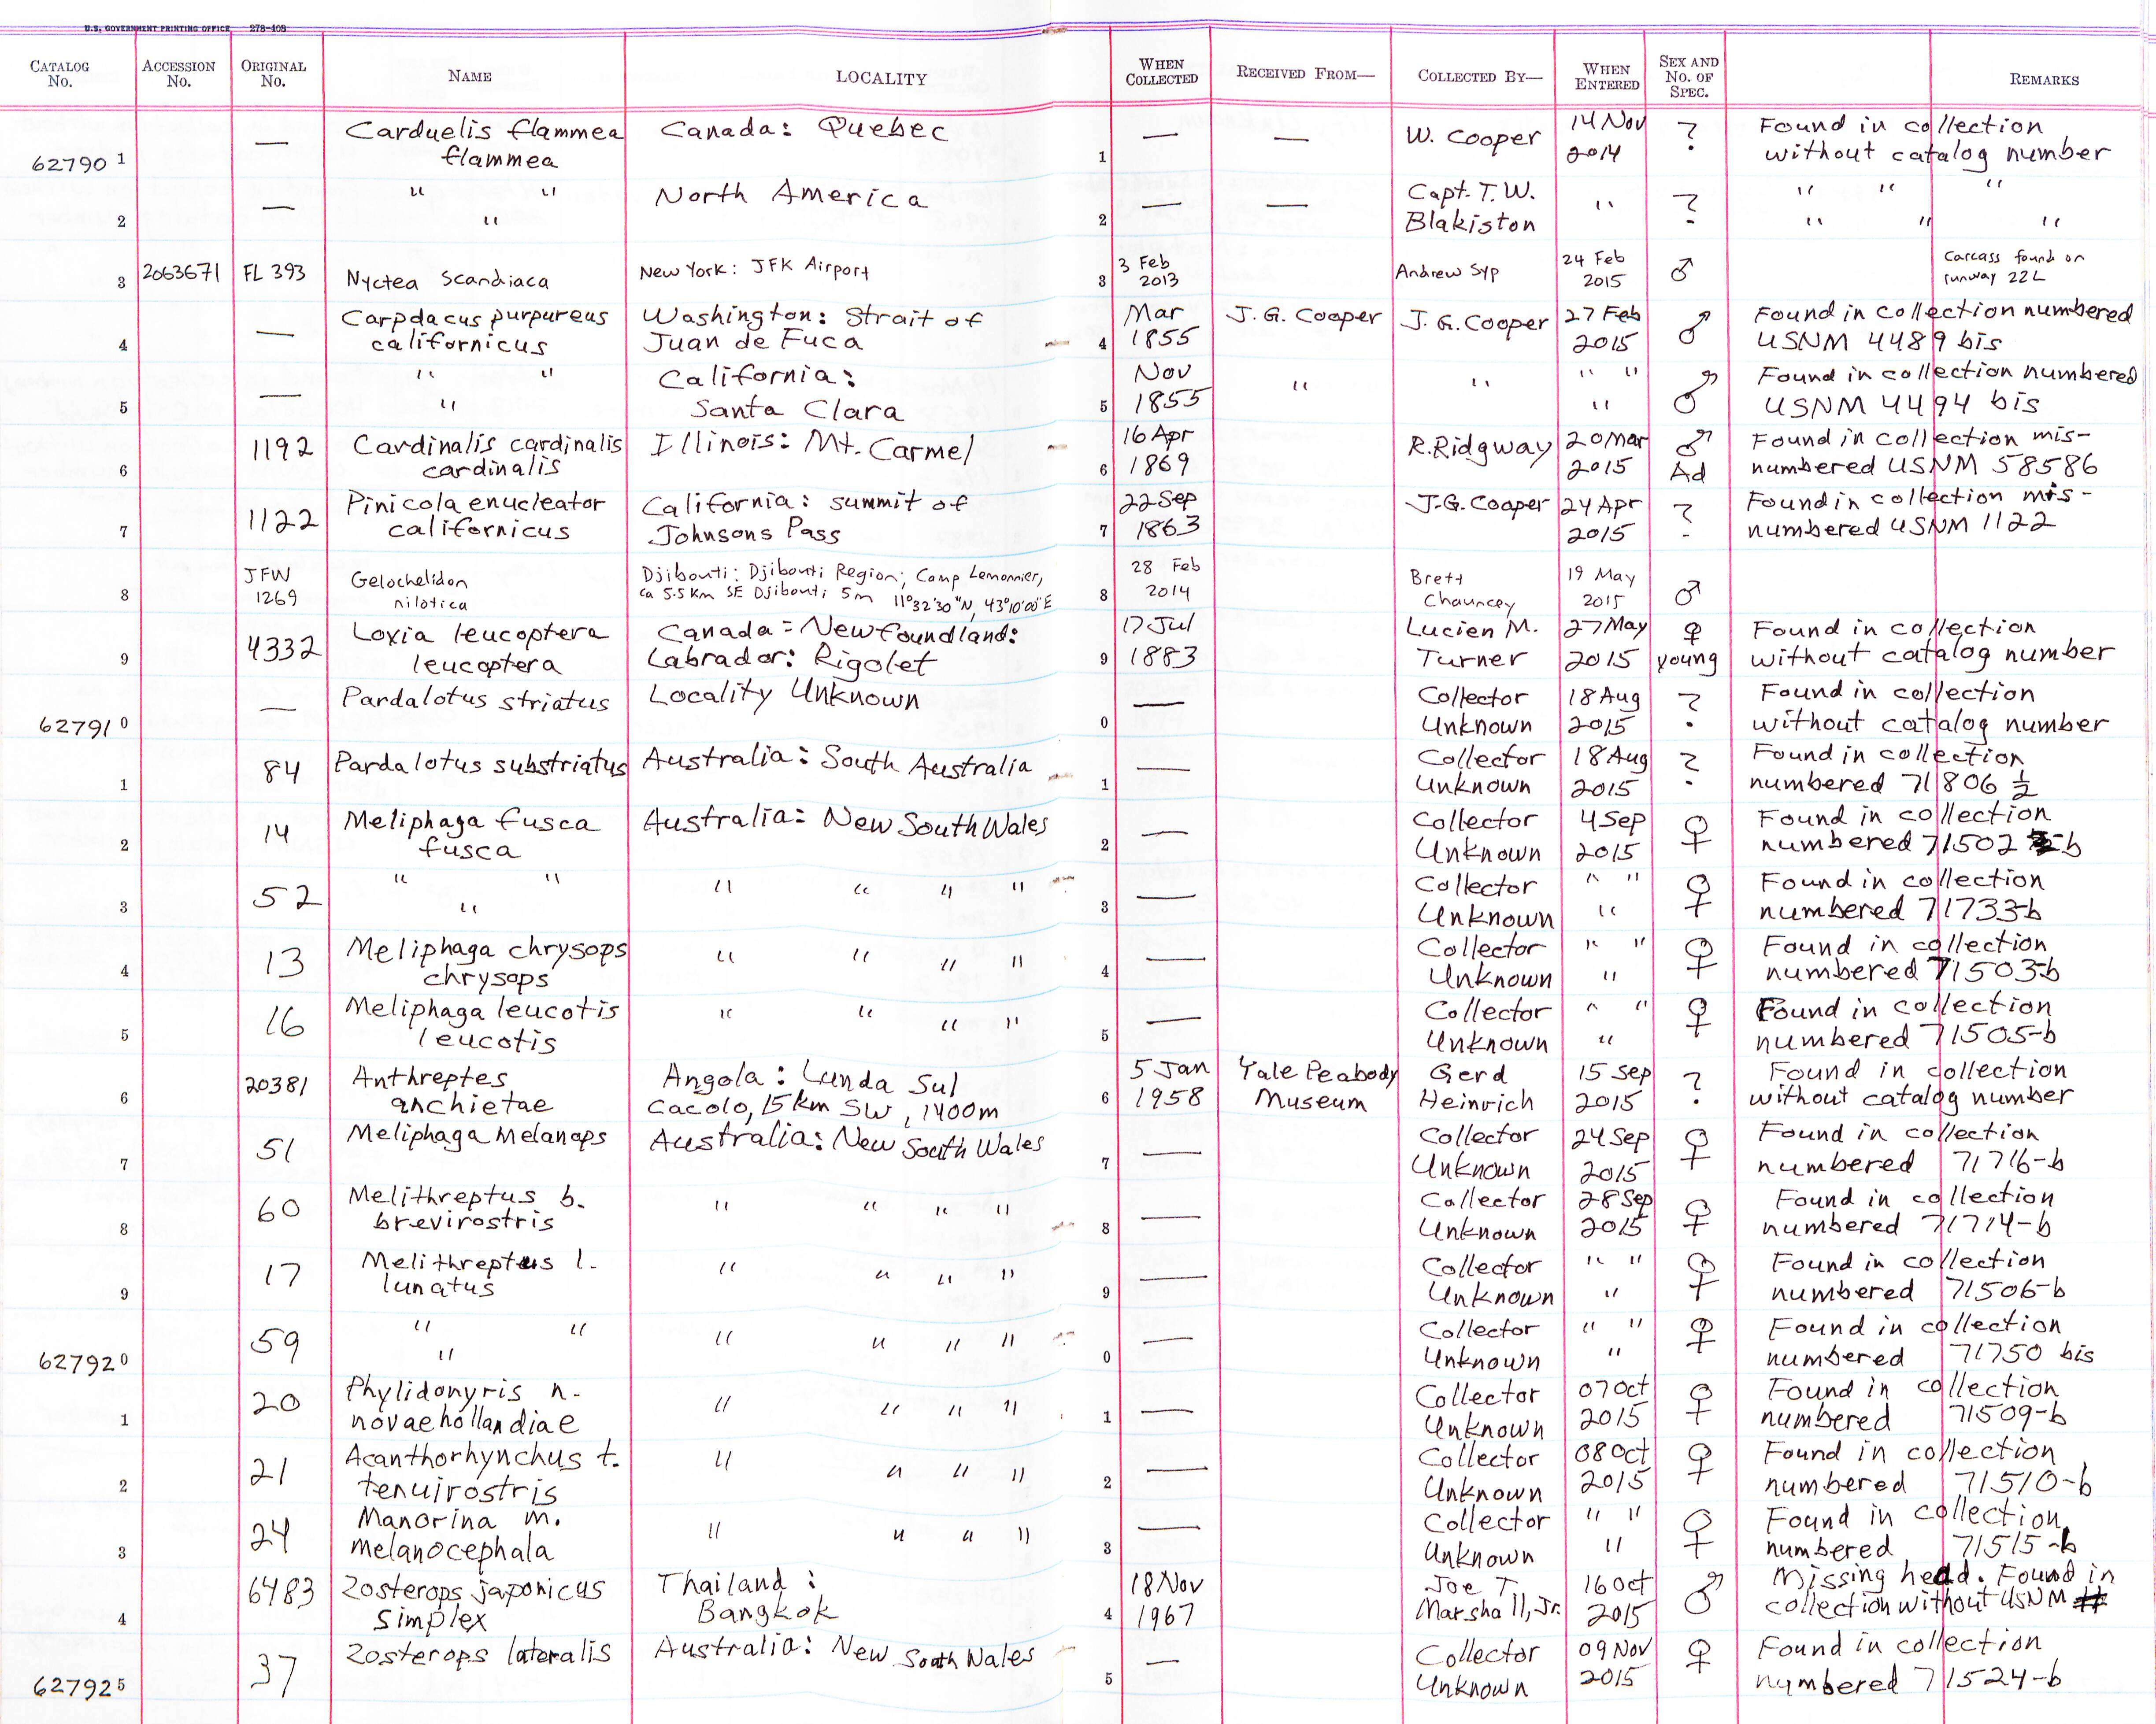 U.S. GOVERNMENT PRINTING OFFICE 278-408
CATALOG No. ACCESSION No. ORIGINAL No. NAME LOCALITY WHEN COLLECTED RECEIVED FROM— COLLECTED BY— WHEN ENTERED SEX AND No. OF SPEC. REMARKS
— Carduelis flammea Canada: Quebec — — W. Cooper 14 Nov ? Found in collection
62790 1 flammea 1 2014 without catalog number
— " " North America — — Capt. T.W. " ? " " "
2 " 2 Blakiston " " "
2063671 FL 393 New York: JFK Airport 3 Feb Andrew Syp 24 Feb ♂ Carcass found on
3 Nyctea scandiaca 3 2013 2015 runway 22L
— Carpdacus purpureus Washington: Strait of Mar J.G. Cooper J.G. Cooper 27 Feb ♂ Found in collection numbered
4 californicus Juan de Fuca 4 1855 2015 USNM 4489 bis
— " " California: Nov " " " " ♂ Found in collection numbered
5 " Santa Clara 5 1855 " USNM 4494 bis
1192 Cardinalis cardinalis Illinois: Mt. Carmel 16 Apr R. Ridgway 20 Mar ♂ Found in collection mis-
6 cardinalis 6 1869 2015 Ad numbered USNM 58586
1122 Pinicola enucleator California: summit of 22 Sep J.G. Cooper 24 Apr ? Found in collection mis-
7 californicus Johnsons Pass 7 1863 2015 numbered USNM 1122
JFW Gelochelidon Djibouti: Djibouti Region; Camp Lemonnier, 28 Feb Brett 19 May ♂
8 1269 nilotica ca 5.5 km SE Djibouti 5m 11°32'30"N, 43°10'00"E 8 2014 Chauncey 2015
4332 Loxia leucoptera Canada: Newfoundland: 17 Jul Lucien M. 27 May ♀ Found in collection
9 leucoptera Labrador: Rigolet 9 1883 Turner 2015 young without catalog number
— Pardalotus striatus Locality Unknown — Collector 18 Aug ? Found in collection
62791 0 0 Unknown 2015 without catalog number
84 Pardalotus substriatus Australia: South Australia — Collector 18 Aug ? Found in collection
1 1 Unknown 2015 numbered 71806 ½
14 Meliphaga fusca Australia: New South Wales — Collector 4 Sep ♀ Found in collection
2 fusca 2 Unknown 2015 numbered 71502-b
52 " " " " " " — Collector " " ♀ Found in collection
3 " 3 Unknown " numbered 71733-b
13 Meliphaga chrysops " " " " — Collector " " ♀ Found in collection
4 chrysops 4 Unknown " numbered 71503-b
16 Meliphaga leucotis " " " " — Collector " " ♀ Found in collection
5 leucotis 5 Unknown " numbered 71505-b
20381 Anthreptes Angola: Lunda Sul 5 Jan Yale Peabody Gerd 15 Sep ? Found in collection
6 anchietae Cacolo, 15 km SW, 1400m 6 1958 Museum Heinrich 2015 without catalog number
51 Meliphaga melanops Australia: New South Wales — Collector 24 Sep ♀ Found in collection
7 7 Unknown 2015 numbered 71716-b
60 Melithreptus b. " " " " — Collector 28 Sep ♀ Found in collection
8 brevirostris 8 Unknown 2015 numbered 71714-b
17 Melithreptus l. " " " " — Collector " " ♀ Found in collection
9 lunatus 9 Unknown " numbered 71506-b
59 " " " " " " — Collector " " ♀ Found in collection
62792 0 " 0 Unknown " numbered 71750 bis
20 Phylidonyris n. " " " " — Collector 07 Oct ♀ Found in collection
1 novaehollandiae 1 Unknown 2015 numbered 71509-b
21 Acanthorhynchus t. " " " " — Collector 08 Oct ♀ Found in collection
2 tenuirostris 2 Unknown 2015 numbered 71510-b
24 Manorina m. " " " " — Collector " " ♀ Found in collection
3 melanocephala 3 Unknown " numbered 71515-b
6483 Zosterops japonicus Thailand: 18 Nov Joe T. 16 Oct ♂ Missing head. Found in
4 simplex Bangkok 4 1967 Marshall, Jr. 2015 collection without USNM #
37 Zosterops lateralis Australia: New South Wales — Collector 09 Nov ♀ Found in collection
62792 5 5 Unknown 2015 numbered 71524-b